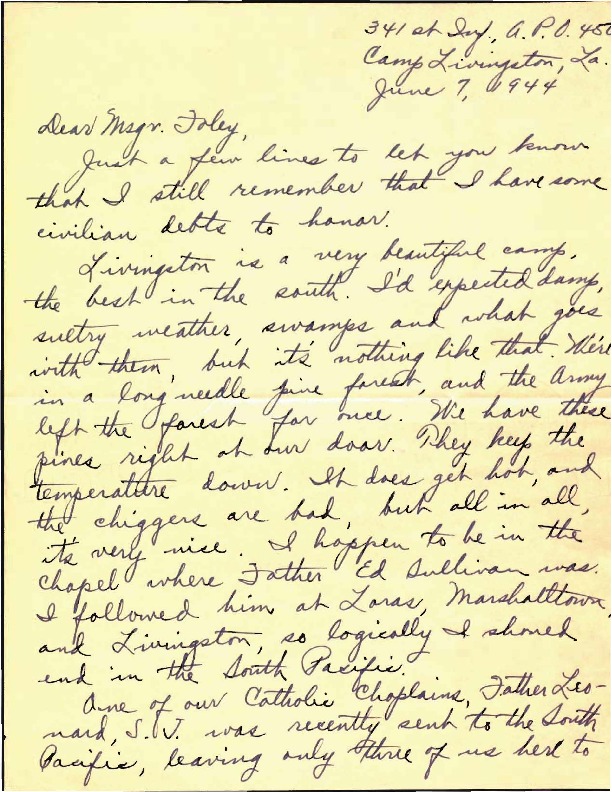 341 st Inf., A. P. O. 450
Camp Livingston, La.
June 7, 1944
Dear Msgr. Foley,
Just a few lines to let you know
that I still remember that I have some
civilian debts to honor.
Livingston is a very beautiful camp,
the best in the south. I'd expected damp,
sultry weather, swamps and what goes
with them, but it's nothing like that. We're
in a long needle pine forest, and the Army
left the forest for once. We have these
pines right at our door. They keep the
temperature down. It does get hot, and
the chiggers are bad, but all in all,
it's very nise. I happen to be in the
chapel where Father Ed Sullivan was.
I followed him at Loras, Marshalltown,
and Livingston, so logically I shoned
end in the South Pacific.
One of our Catholic Chaplains, Father Leo-
nard, S. J. was recently sent to the South
Pacific, leaving only three of us here to